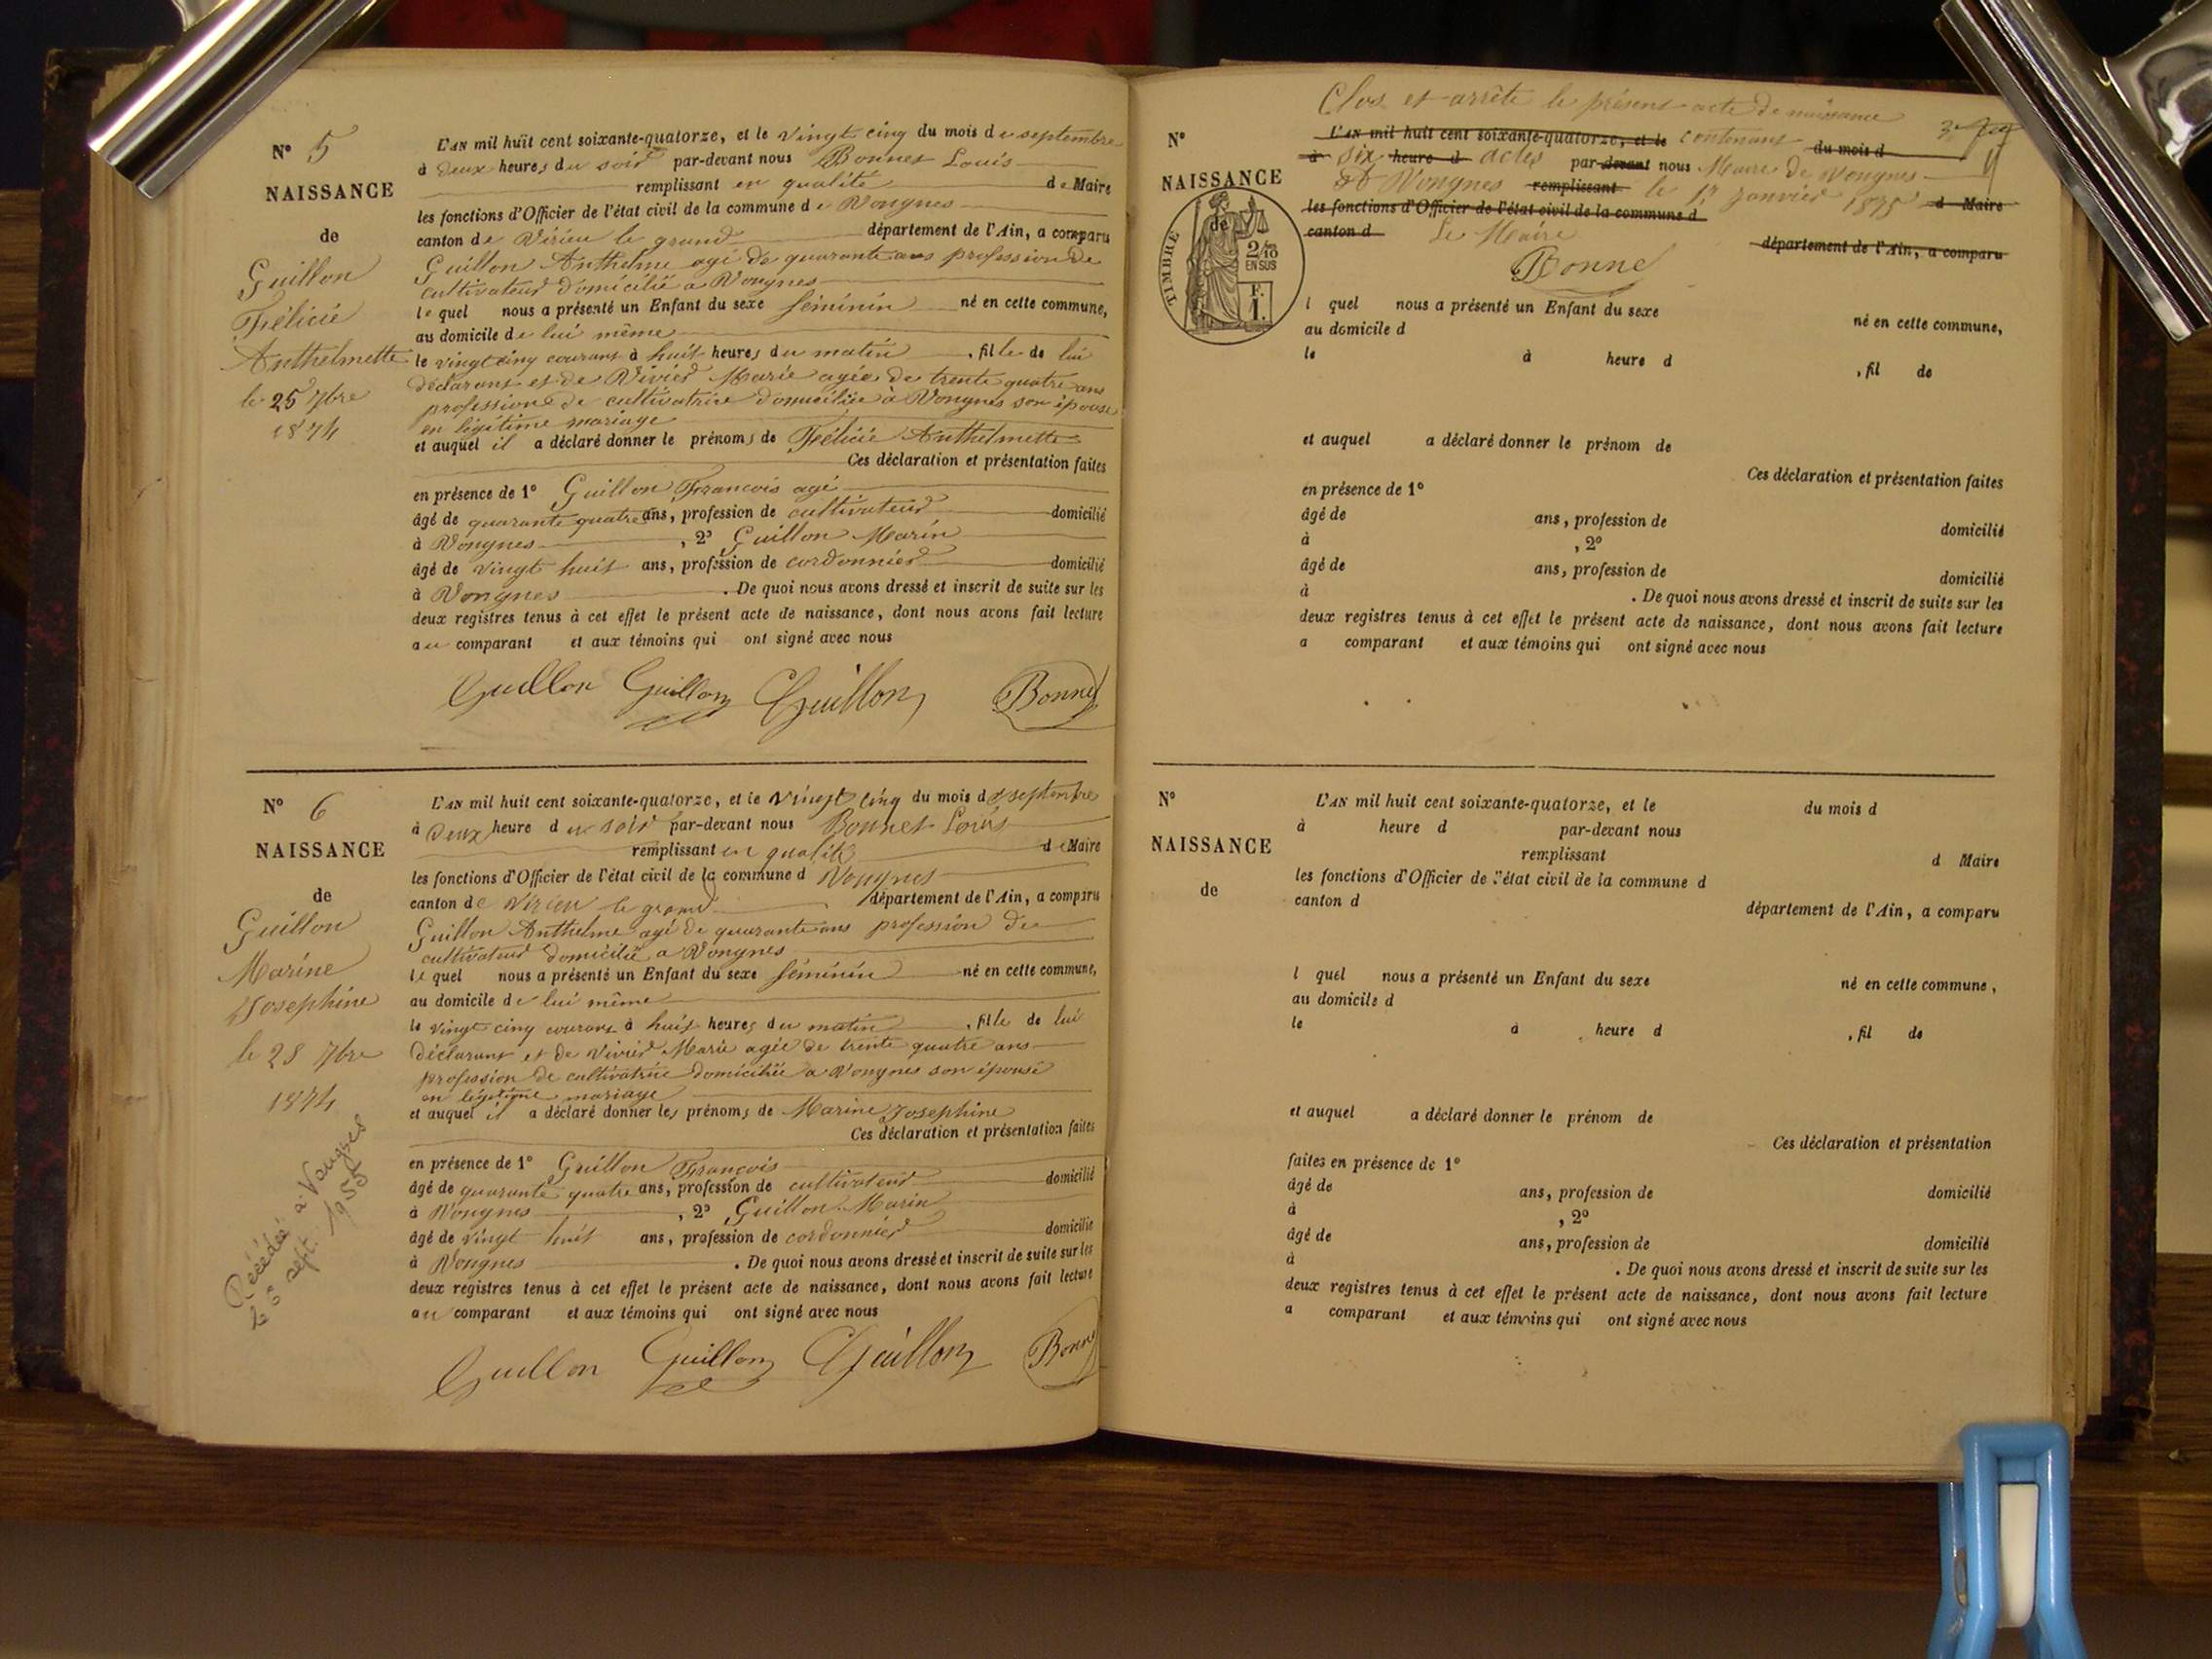 N° 5
NAISSANCE
de
Guillon
Félicie
Anthelmette
le 25 7bre
1874
L'AN mil huit cent soixante-quatorze, et le vingt cinq du mois de septembre
à deux heures du soir par-devant nous Bonnet Louis
remplissant en qualité de Maire
les fonctions d'Officier de l'état civil de la commune de Vongnes
canton de Virieu le grand département de l'Ain, a comparu
Guillon Anthelme agé de quarante ans profession de
cultivateur domicilié a Vongnes
lequel nous a présenté un Enfant du sexe féminin né en cette commune,
au domicile de lui même
le vingt cinq courant à huit heures du matin, fille de lui
déclarant et de Vivier Marie agée de trente quatre ans
profession de cultivatrice domiciliée à Vongnes son épouse
en légitime mariage
et auquel il a déclaré donner le prénoms de Félicie Anthelmette
Ces déclaration et présentation faites
en présence de 1° Guillon François agé
âgé de quarante quatre ans, profession de cultivateur domicilié
à Vongnes, 2° Guillon Marin
âgé de vingt huit ans, profession de cordonnier domicilié
à Vongnes. De quoi nous avons dressé et inscrit de suite sur les
deux registres tenus à cet effet le présent acte de naissance, dont nous avons fait lecture
au comparant et aux témoins qui ont signé avec nous
Guillon Guillon Guillon Bonnet
N° 6
NAISSANCE
de
Guillon
Marine
Josephine
le 25 7bre
1874
Décédée à Vongnes
le 6 sept. 1955
L'AN mil huit cent soixante-quatorze, et le vingt cinq du mois de septembre
à deux heure du soir par-devant nous Bonnet Louis
remplissant en qualité de Maire
les fonctions d'Officier de l'état civil de la commune d Vongnes
canton de Virieu le grand département de l'Ain, a comparu
Guillon Anthelme agé de quarante ans profession de
cultivateur domicilié a Vongnes
lequel nous a présenté un Enfant du sexe féminin né en cette commune,
au domicile de lui même
le vingt cinq courant à huit heures du matin, fille de lui
déclarant et de Vivier Marie agée de trente quatre ans
profession de cultivatrice domiciliée a Vongnes son épouse
en légitime mariage
et auquel il a déclaré donner les prénoms de Marine Josephine
Ces déclaration et présentation faites
en présence de 1° Guillon François
âgé de quarante quatre ans, profession de cultivateur domicilié
à Vongnes, 2° Guillon Marin
âgé de vingt huit ans, profession de cordonnier domicilié
à Vongnes. De quoi nous avons dressé et inscrit de suite sur les
deux registres tenus à cet effet le présent acte de naissance, dont nous avons fait lecture
au comparant et aux témoins qui ont signé avec nous
Guillon Guillon Guillon Bonnet
Clos et arrête le présent acte de naissance
N°
NAISSANCE
de
TIMBRE
2/10
EN SUS
F.
1.
L'AN mil huit cent soixante-quatorze, et le contenant du mois d
à six heure d actes par-devant nous Maire de Vongnes
Vongnes remplissant le 1r janvier 1875 d Maire
les fonctions d'Officier de l'état civil de la commune d
canton d Le Maire département de l'Ain, a comparu
Bonnet
l quel nous a présenté un Enfant du sexe né en cette commune,
au domicile d
le à heure d , fil de
et auquel a déclaré donner le prénom de
Ces déclaration et présentation faites
en présence de 1°
âgé de ans, profession de domicilié
à , 2°
âgé de ans, profession de domicilié
à . De quoi nous avons dressé et inscrit de suite sur les
deux registres tenus à cet effet le présent acte de naissance, dont nous avons fait lecture
a comparant et aux témoins qui ont signé avec nous
N°
NAISSANCE
de
L'AN mil huit cent soixante-quatorze, et le du mois d
à heure d par-devant nous
remplissant d Maire
les fonctions d'Officier de l'état civil de la commune d
canton d département de l'Ain, a comparu
l quel nous a présenté un Enfant du sexe né en cette commune,
au domicile d
le à heure d , fil de
et auquel a déclaré donner le prénom de
Ces déclaration et présentation
faites en présence de 1°
âgé de ans, profession de domicilié
à , 2°
âgé de ans, profession de domicilié
à . De quoi nous avons dressé et inscrit de suite sur les
deux registres tenus à cet effet le présent acte de naissance, dont nous avons fait lecture
a comparant et aux témoins qui ont signé avec nous